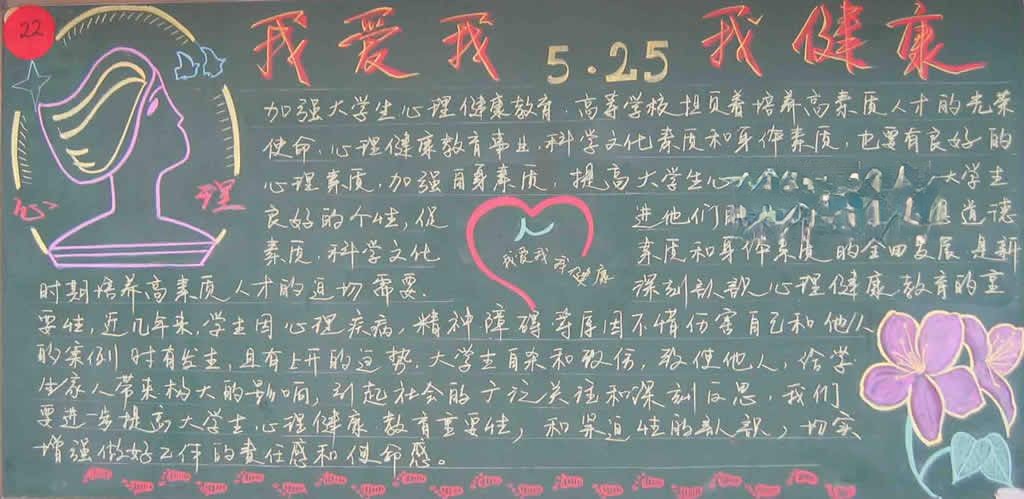 22
我爱我 5·25 我健康
心 理
加强大学生心理健康教育，高等学校担负着培养高素质人才的光荣
使命，心理健康教育事业，科学文化素质和身体素质，也要有良好的
心理素质，加强自身素质，提高大学生心 大学生
良好的个性，促 进他们 道德
素质，科学文化 素质和身体素质的全面发展是新
我爱我 我健康
时期培养高素质人才的迫切需要． 深刻认识心理健康教育的重
要性，近几年来，学生因心理疾病，精神障碍等原因不惜伤害自己和他人
的案例时有发生，且有上升的运势．大学生自杀和致伤，致使他人，给学
生家人带来构大的影响，引起社会的广泛关注和深刻反思，我们
要进一步提高大学生心理健康教育重要性，和紧迫性的认识，切实
增强做好工作的责任感和使命感。